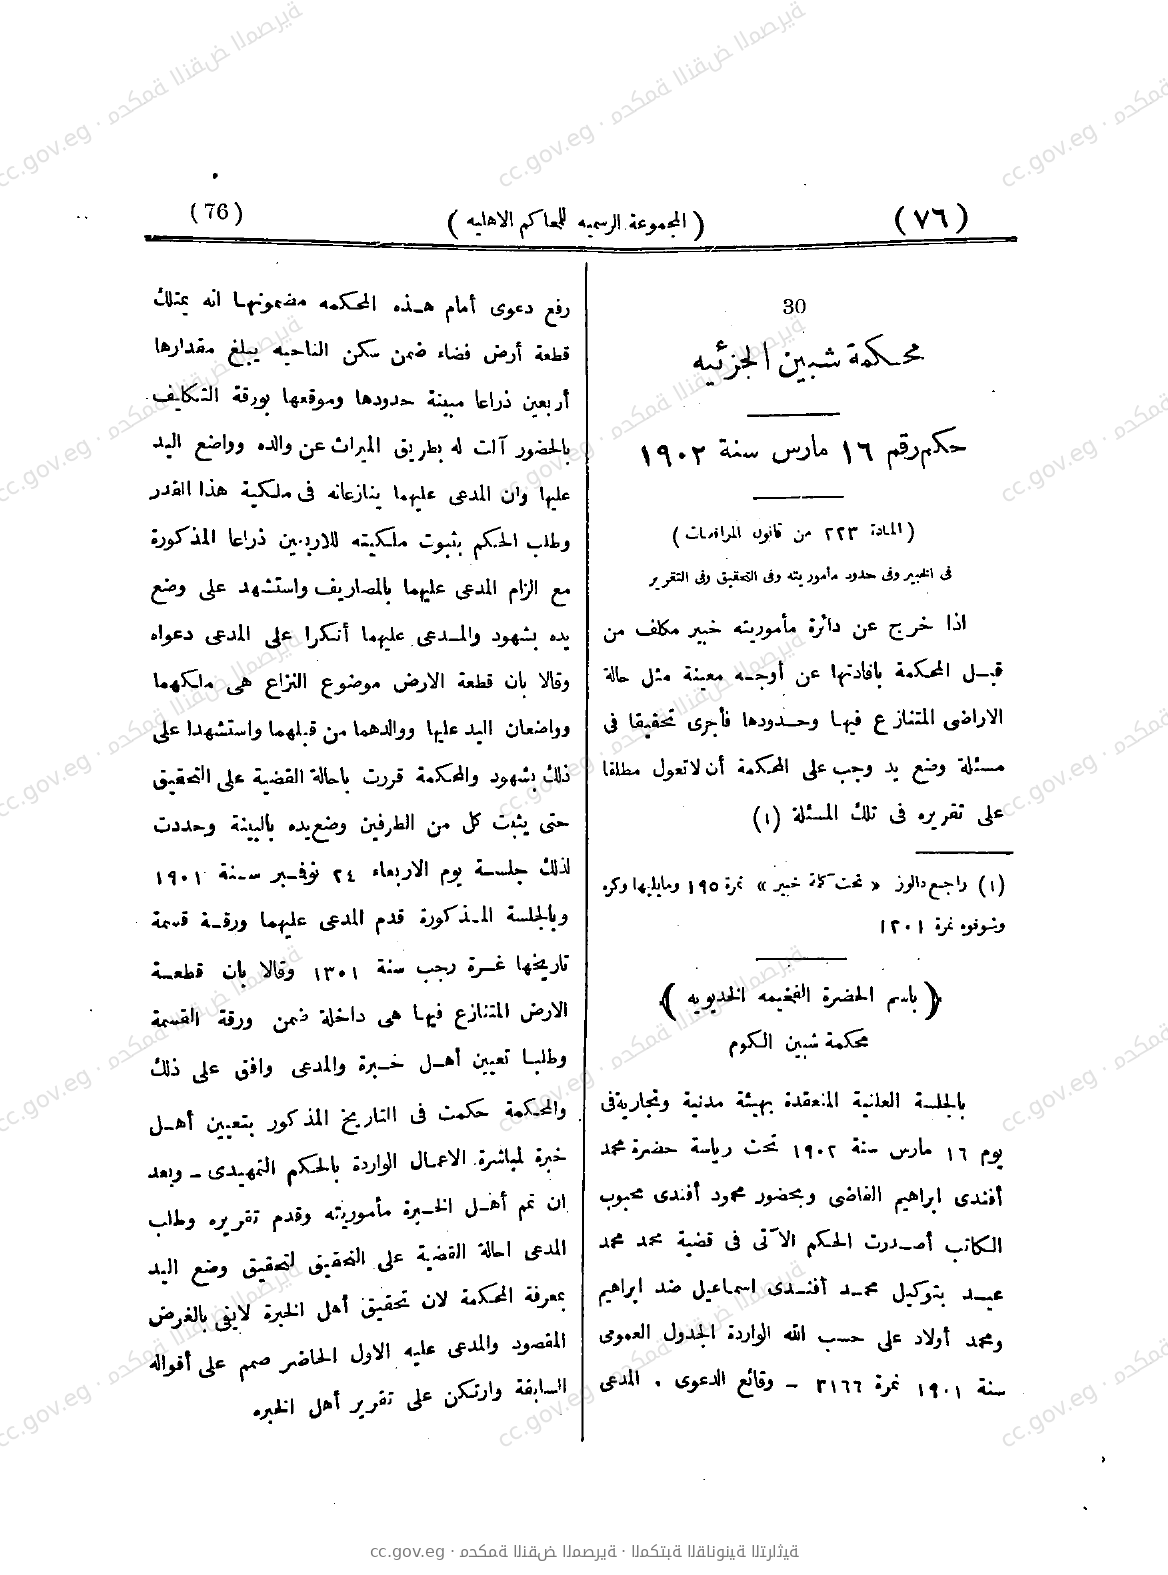 (٧٦)
( المجموعة الرسميه للمحاكم الاهليه )
( 76 )
30
محكمة شبين الجزئيه
حكم رقم ١٦ مارس سنة ١٩٠٢
( المادة ٢٢٣ من قانون المرافعات )
فى الخبير وفى حدود مأموريته وفى التحقيق وفى التقرير
اذا خرج عن دائرة مأموريته خبير مكلف من
قبل المحكمة بافادتها عن أوجه معينة مثل حالة
الاراضى المتنازع فيها وحدودها فأجرى تحقيقا فى
مسئلة وضع يد وجب على المحكمة أن لاتعول مطلقا
على تقريره فى تلك المسئلة (١)
(١) راجع دالوز « تحت كلمة خبير » نمرة ١٩٥ ومايليها وكره
وشوفوه نمرة ١٢٠١
( باسم الحضرة الفخيمه الخديويه )
محكمة شبين الكوم
بالجلسة العلنية المنعقدة بهيئة مدنية وتجارية فى
يوم ١٦ مارس سنة ١٩٠٢ تحت رياسة حضرة محمد
أفندى ابراهيم القاضى وبحضور محمود أفندى محبوب
الكاتب أصدرت الحكم الآتى فى قضية محمد محمد
عبد بتوكيل محمد أفندى اسماعيل ضد ابراهيم
ومحمد أولاد على حسب الله الواردة الجدول العمومى
سنة ١٩٠١ نمرة ٣١٦٦ – وقائع الدعوى . المدعى
رفع دعوى أمام هذه المحكمه مضمونها انه يمتلك
قطعة أرض فضاء ضمن سكن الناحيه يبلغ مقدارها
أربعين ذراعا مبينة حدودها وموقعها بورقة التكليف
بالحضور آلت له بطريق الميراث عن والده وواضع اليد
عليها وان المدعى عليهما ينازعانه فى ملكية هذا القدر
وطلب الحكم بثبوت ملكيته للاربعين ذراعا المذكورة
مع الزام المدعى عليهما بالمصاريف واستشهد على وضع
يده بشهود والمدعى عليهما أنكرا على المدعى دعواه
وقالا بان قطعة الارض موضوع النزاع هى ملكهما
وواضعان اليد عليها ووالدهما من قبلهما واستشهدا على
ذلك بشهود والمحكمة قررت باحالة القضية على التحقيق
حتى يثبت كل من الطرفين وضع يده بالبينة وحددت
لذلك جلسة يوم الاربعاء ٢٤ نوفمبر سنة ١٩٠١
وبالجلسة المذكورة قدم المدعى عليهما ورقة قسمة
تاريخها غرة رجب سنة ١٣٠١ وقالا بان قطعة
الارض المتنازع فيها هى داخلة ضمن ورقة القسمة
وطلبا تعيين أهل خبرة والمدعى وافق على ذلك
والمحكمة حكمت فى التاريخ المذكور بتعيين أهل
خبرة لمباشرة الاعمال الواردة بالحكم التمهيدى – وبعد
ان تمم أهل الخبرة مأموريته وقدم تقريره وطلب
المدعى احالة القضية على التحقيق لتحقيق وضع اليد
بمعرفة المحكمة لان تحقيق أهل الخبرة لايفى بالغرض
المقصود والمدعى عليه الاول الحاضر صمم على أقواله
السابقة وارتكن على تقرير أهل الخبره
cc.gov.eg · محكمة النقض المصرية · المكتبة القانونية التراثية